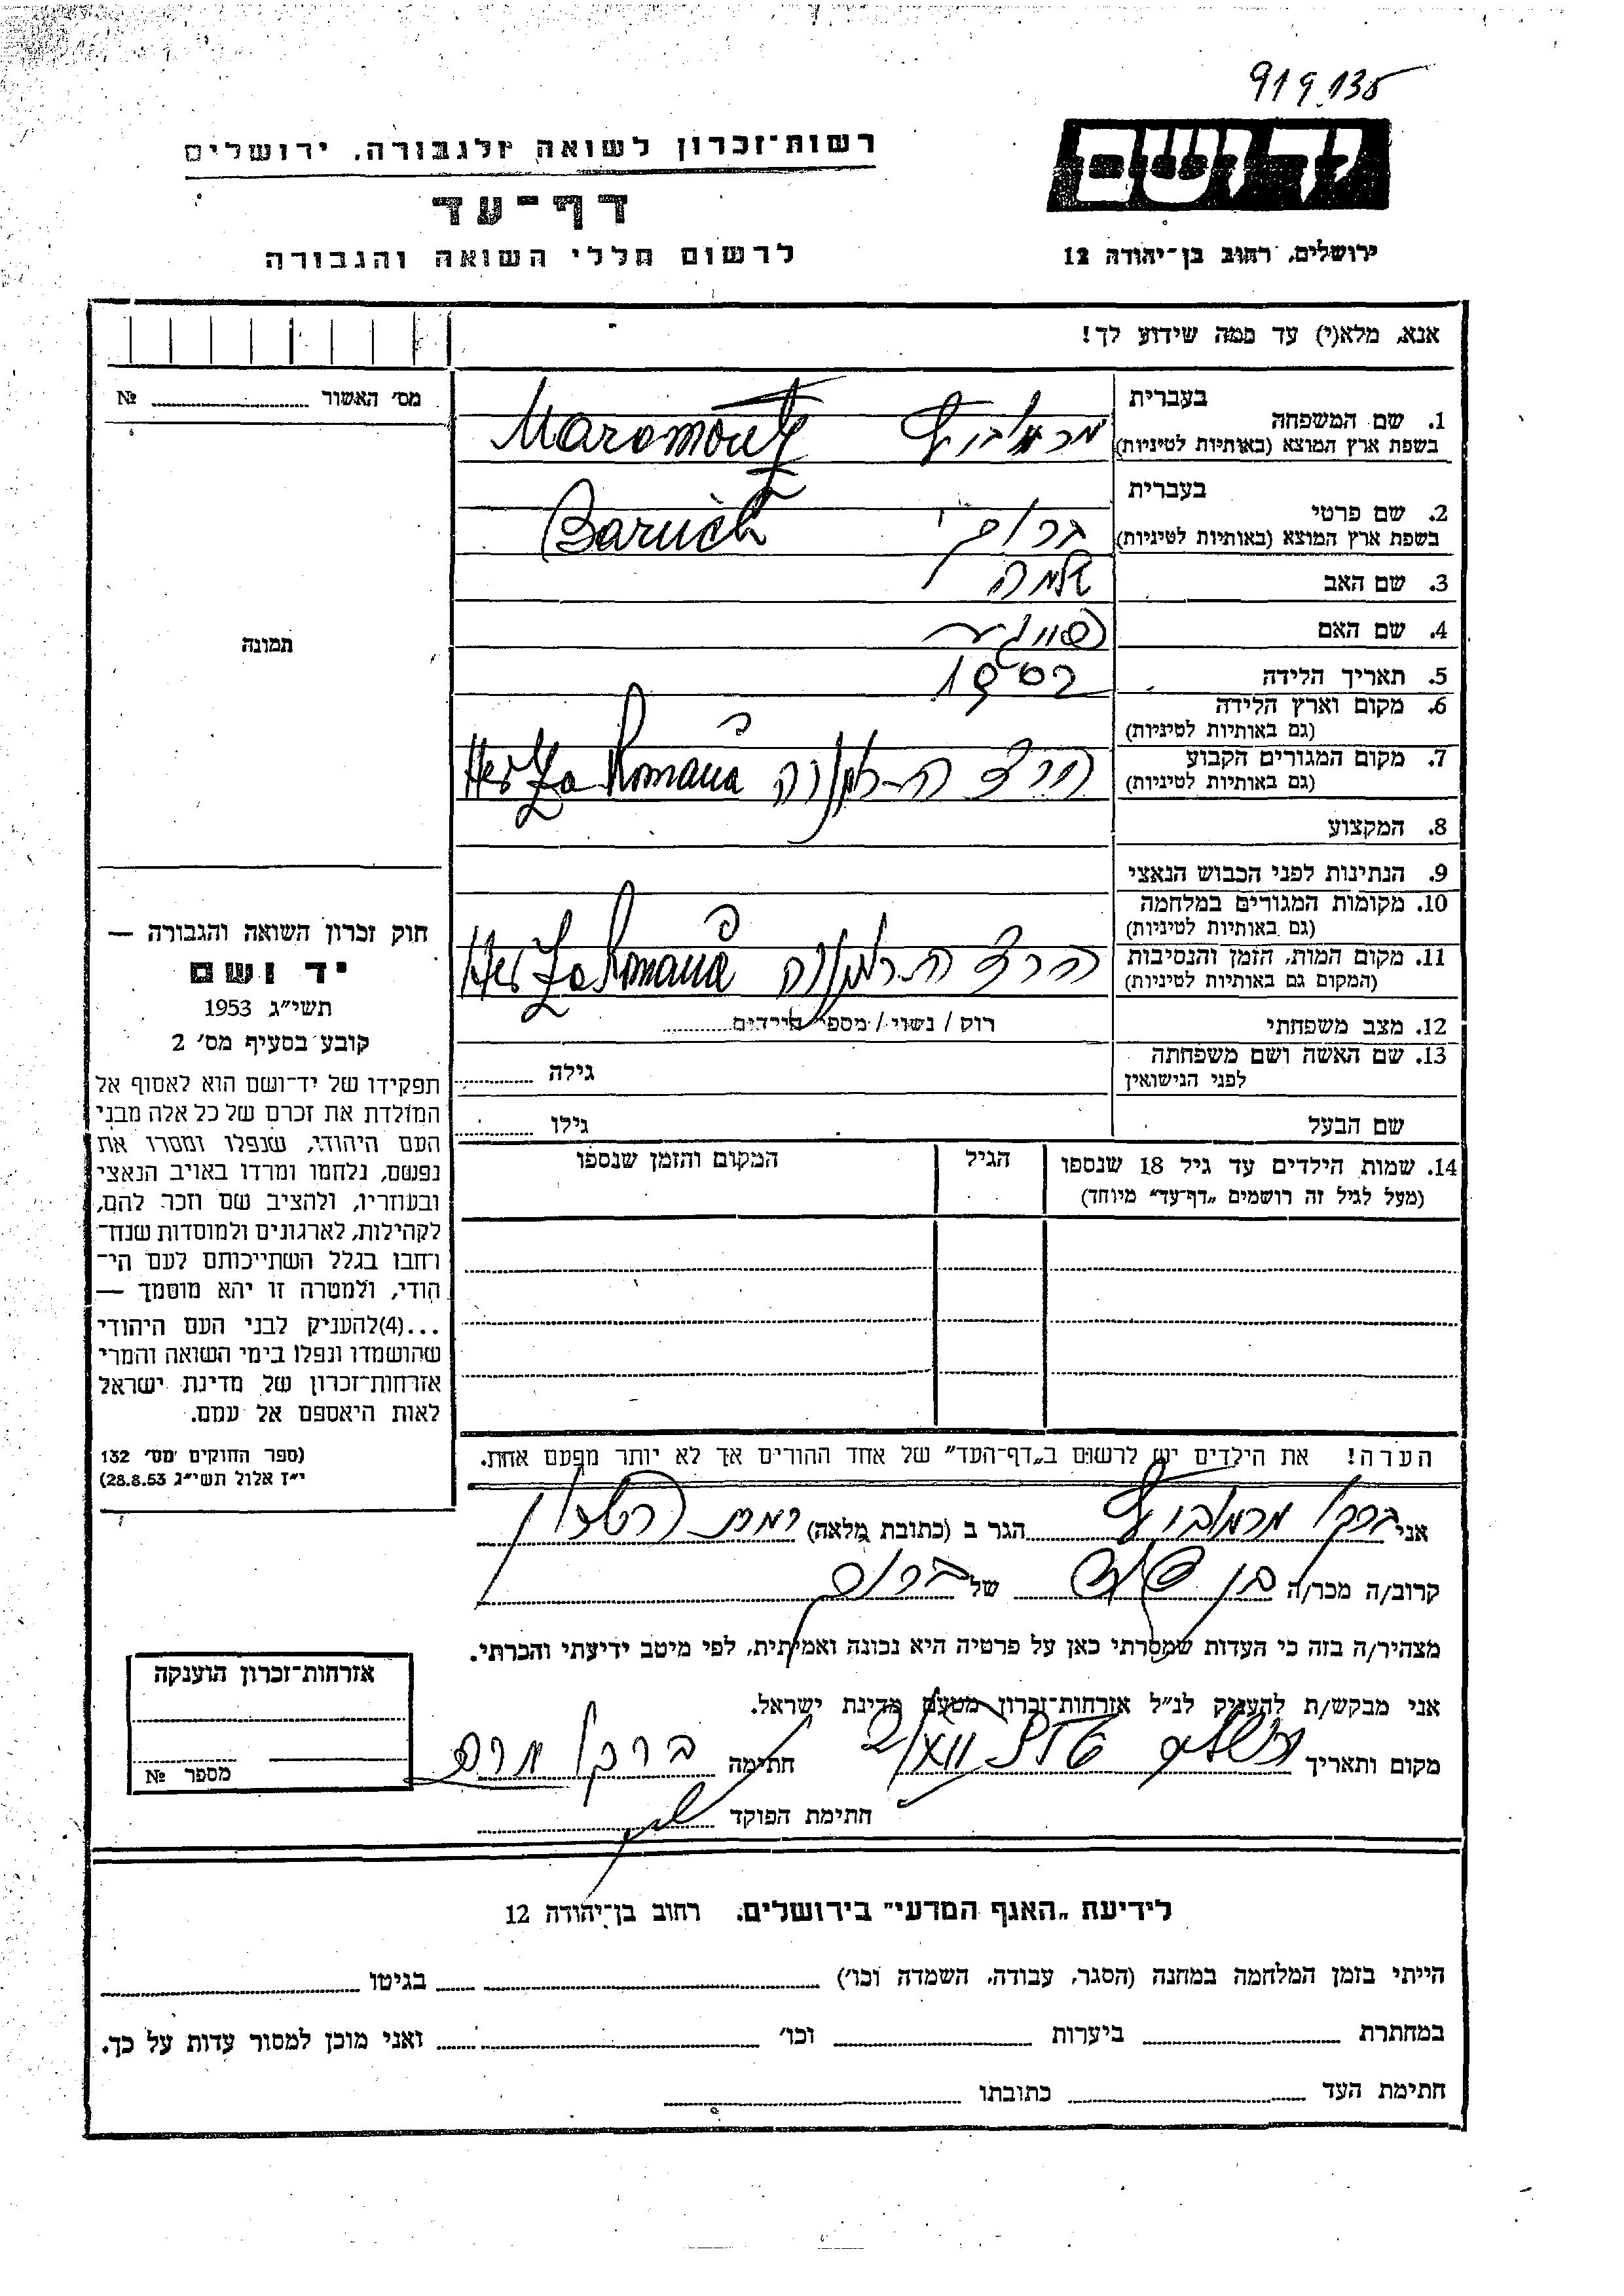 919135
יד ושם
רשות־זכרון לשואה ולגבורה, ירושלים
דף־עד
לרשום חללי השואה והגבורה
ירושלים, רחוב בן־יהודה 12
אנא, מלא(י) עד כמה שידוע לך!
מס׳ האשור № 
בעברית
1. שם המשפחה
בשפת ארץ המוצא (באותיות לטיניות)
בעברית
2. שם פרטי ברוך Baruch
בשפת ארץ המוצא (באותיות לטיניות)
3. שם האב שלמה
4. שם האם
5. תאריך הלידה
6. מקום וארץ הלידה
(גם באותיות לטיניות)
7. מקום המגורים הקבוע
(גם באותיות לטיניות)
8. המקצוע
9. הנתינות לפני הכבוש הנאצי
10. מקומות המגורים במלחמה
(גם באותיות לטיניות)
11. מקום המות, הזמן והנסיבות
(המקום גם באותיות לטיניות)
12. מצב משפחתי רוק / נשוי / מספר הילדים
13. שם האשה ושם משפחתה
לפני הנישואין
גילה
שם הבעל גילו
14. שמות הילדים עד גיל 18 שנספו הגיל המקום והזמן שנספו
(מעל לגיל זה רושמים „דף־עד״ מיוחד)
הערה! את הילדים יש לרשום ב„דף־העד״ של אחד ההורים אך לא יותר מפעם אחת.
תמונה
חוק זכרון השואה והגבורה —
יד ושם
תשי״ג 1953
קובע בסעיף מס׳ 2
תפקידו של יד־ושם הוא לאסוף אל
המולדת את זכרם של כל אלה מבני
העם היהודי, שנפלו ומסרו את
נפשם, נלחמו ומרדו באויב הנאצי
ובעוזריו, ולהציב שם וזכר להם,
לקהילות, לארגונים ולמוסדות שנח־
רחבו בגלל השתייכותם לעם הי־
הודי, ולמטרה זו יהא מוסמך —
...(4)להעניק לבני העם היהודי
שהושמדו ונפלו בימי השואה והמרי
אזרחות־זכרון של מדינת ישראל
לאות היאספם אל עמם.
(ספר החוקים מס׳ 132
י״ז אלול תשי״ג 28.8.53)
אני הגר ב (כתובת מלאה)
קרוב/ה מכר/ה בן של ברוך
מצהיר/ה בזה כי העדות שמסרתי כאן על פרטיה היא נכונה ואמיתית, לפי מיטב ידיעתי והכרתי.
אני מבקש/ת להעניק לנ״ל אזרחות־זכרון מטעם מדינת ישראל.
מקום ותאריך חתימה
חתימת הפוקד
אזרחות־זכרון הוענקה
מספר №
לידיעת „האגף המדעי״ בירושלים, רחוב בן־יהודה 12
הייתי בזמן המלחמה במחנה (הסגר, עבודה, השמדה וכו׳) בגיטו
במחתרת ביערות וכו׳ ואני מוכן למסור עדות על כך.
חתימת העד כתובתו